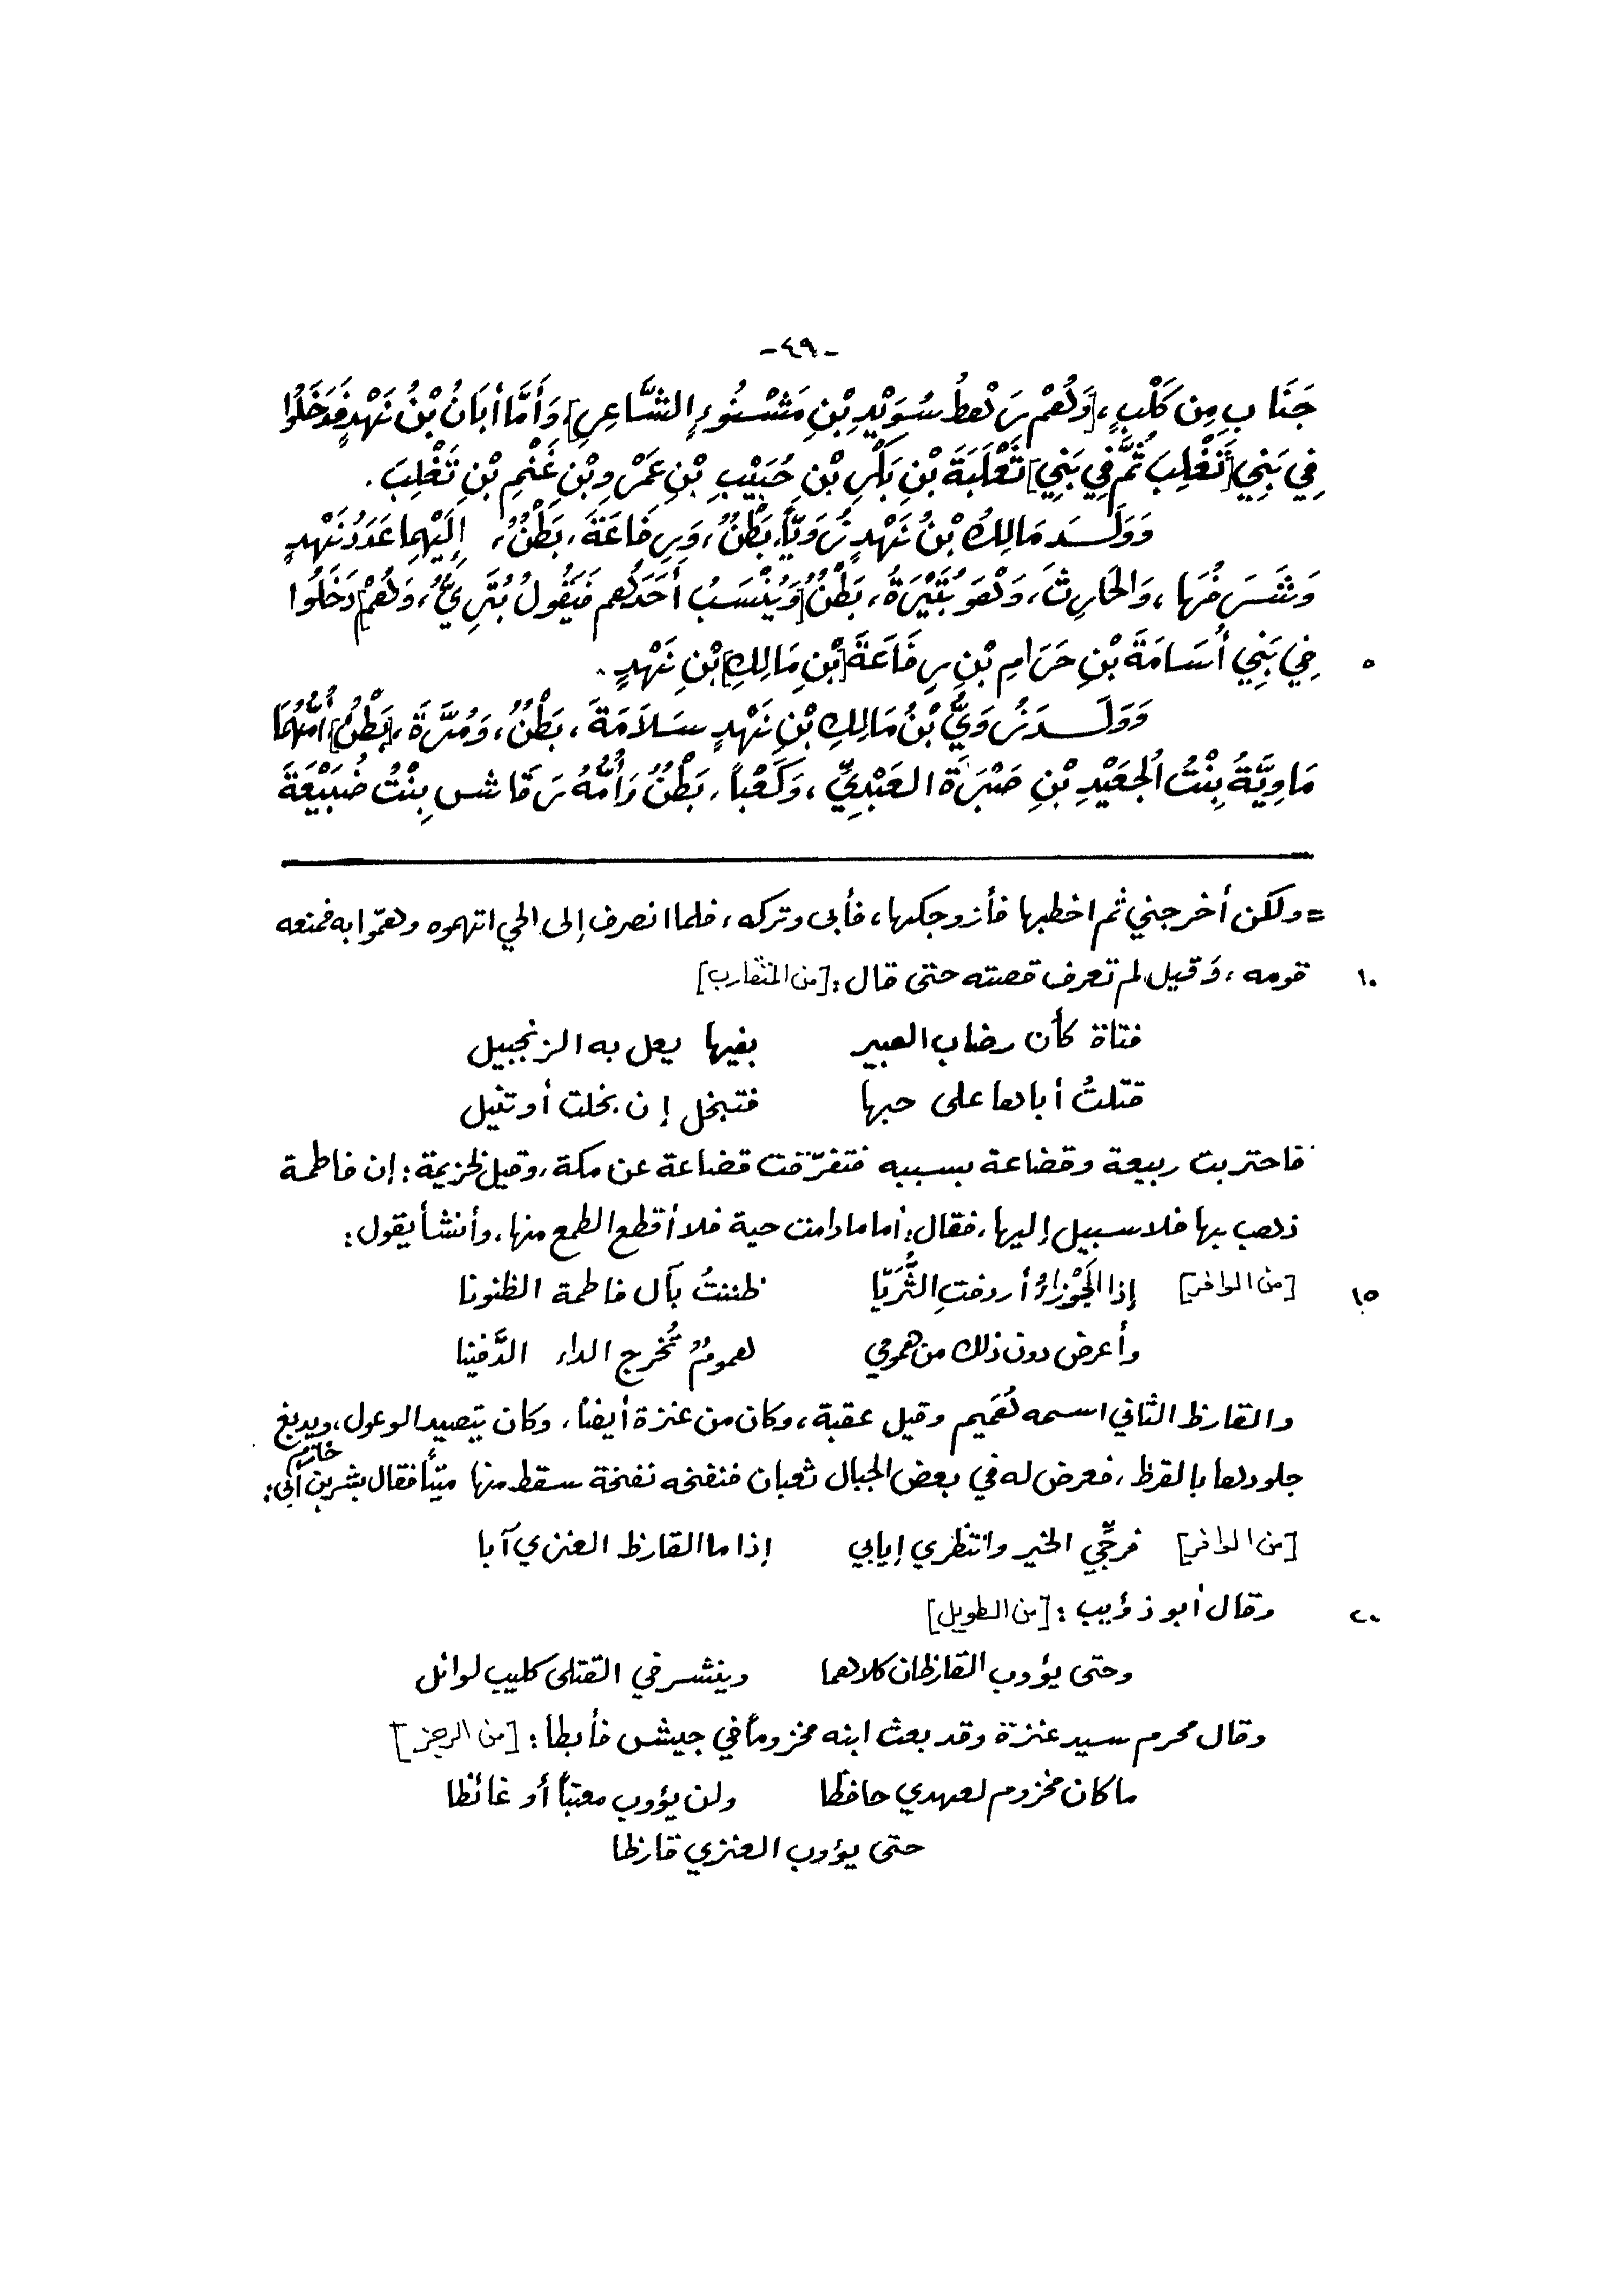 -٤٩-
جَنَابِ مِن كَلْبٍ، [وَهُمْ رَهْطُ سُوَيْدِ بْنِ مَشْنُوءٍ الشَّاعِرِ]، وَأَمَّا أبَانُ بْنُ نَهْدٍ فَدَخَلُوا
فِي بَنِي [تَغْلِبَ ثُمَّ فِي بَنِي] ثَعْلَبَةَ بْنِ بَكْرِ بْنِ حُبَيْبِ بْنِ عَمْرِو بْنِ غَنْمِ بْنِ تَغْلِبَ.
وَوَلَـدَ مَالِكُ بْنُ نَهْدٍ زُوَيّاً، بَطْنٌ، وَرِفَاعَةَ، بَطْنٌ، إِلَيْهِمَا عَدَدُ نَهْدٍ
وَشَرَفُهَا، وَالحَارِثَ، وَهُوَ بُتَيْرَةُ، بَطْنٌ [وَيُنْسَبُ أَحَدُهُم فَيَقُولُ بُتَرِيٌّ، وَهُمْ] دَخَلُوا
فِي بَنِي أُسَامَةَ بْنِ حَرَامِ بْنِ رِفَاعَةَ [بْنِ مَالِكِ] بْنِ نَهْدٍ. ٥
وَوَلَـدَ زُوَيُّ بْنُ مَالِكِ بْنِ نَهْدٍ سَلاَمَةَ، بَطْنٌ، وَمُرَّةَ، [بَطْنٌ]، أُمُّهُمَا
مَاوِيَّةُ بِنْتُ الجُعَيْدِ بْنِ صَبْرَةَ العَبْدِيِّ، وَكَعْباً، بَطْنٌ وَأُمُّهُ رَقَاشِ بِنْتُ ضُبَيْعَةَ
= ولكن أخرجني ثم اخطبها فأزوجكها، فأبى وتركه، فلما انصرف إلى الحي اتهموه وهمّوا به فمنعه
قومه، وَقيل لم تعرف قصته حتى قال: [من المتقارب] ١٠
فتاة كأن رضاب العبير بفيها يعل به الزنجبيل
قتلتُ أباها على حبها فتبخل إن بخلت أو تنيل
فاحتربت ربيعة وقضاعة بسببه فتفرّقت قضاعة عن مكة، وقيل لخزيمة: إن فاطمة
ذهب بها فلا سبيل إليها، فقال: أما ما دامت حية فلا أقطع الطمع منها، وأنشأ يقول:
[من الوافر] إذا الجَوْزاءُ أردفتِ الثُّرَيّا ظننتُ بآل فاطمة الظنونا ١٥
وأعرض دون ذلك من همومي همومٌ تُخرج الداء الدَّفينا
والقارظ الثاني اسمه هُمَيم وقيل عقبة، وكان من عنزة أيضاً، وكان يتصيد الوعول، ويدبغ
جلودها بالقرظ، فعرض له في بعض الجبال ثعبان فنفخه نفخة سقط منها ميتاً فقال بشر بن أبي خازم:
[من الوافر] فرجِّي الخير وانتظري إيابي إذا ما القارظ العنزي آبا
وقال أبو ذؤيب: [من الطويل] ٢٠
وحتى يؤوب القارظان كلاهما وينشر في القتلى كليب لوائل
وقال محرم سيد عنزة وقد بعث ابنه مخزوماً في جيش فأبطأ: [من الرجز]
ما كان مخزوم لعهدي حافظا ولن يؤوب معتباً أو غائظا
حتى يؤوب العنزي قارظا